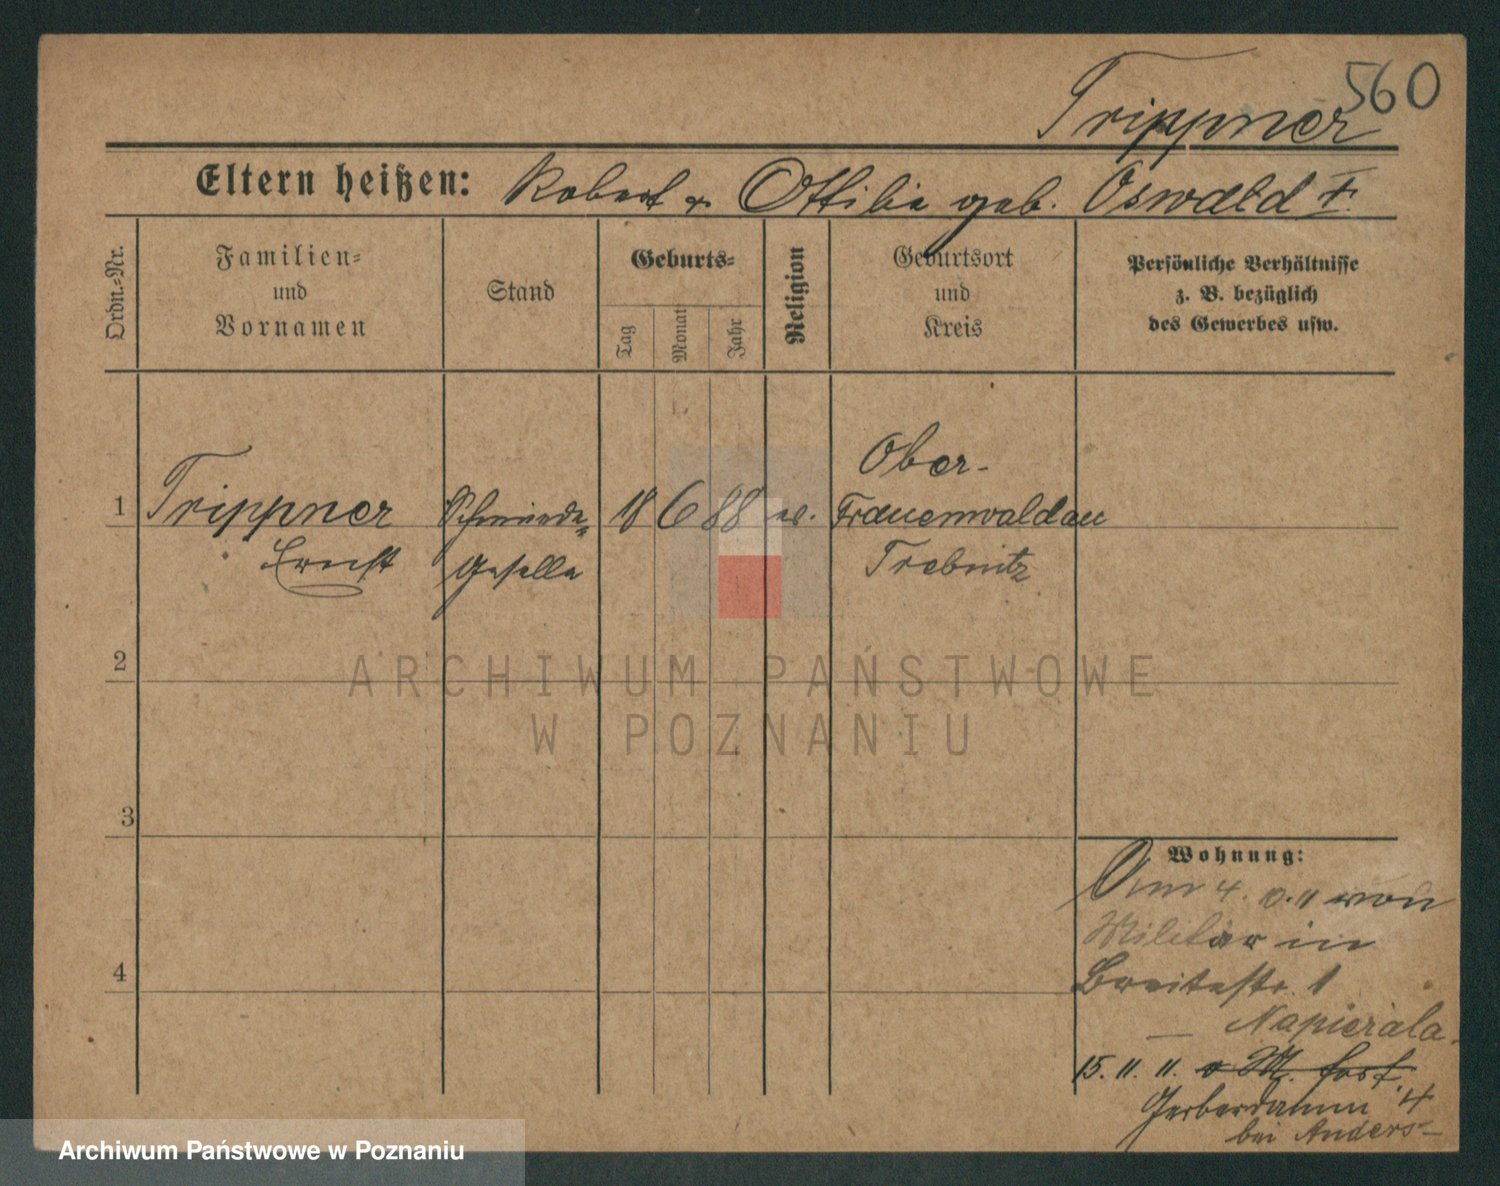 560
Trippner
Eltern heißen: Robert u. Ottilie geb. Oswald †.
Ordn.-Nr.
Familien-
und
Vornamen
Stand
Geburts-
Tag
Monat
Jahr
Religion
Geburtsort
und
Kreis
Persönliche Verhältnisse
z. B. bezüglich
des Gewerbes usw.
Ober-
1 Trippner Schmiede- 18 6 88 ev. Frauenwaldau
Ernst geselle Trebnitz
2
ARCHIWUM PAŃSTWOWE
W POZNANIU
3
Wohnung:
Am 4. 10. 11 von
Militär in
4
Breitestr. 1
— Napierala
15. 11. 11. o. M. fort.
Gerberdamm 4
bei Anders
Archiwum Państwowe w Poznaniu